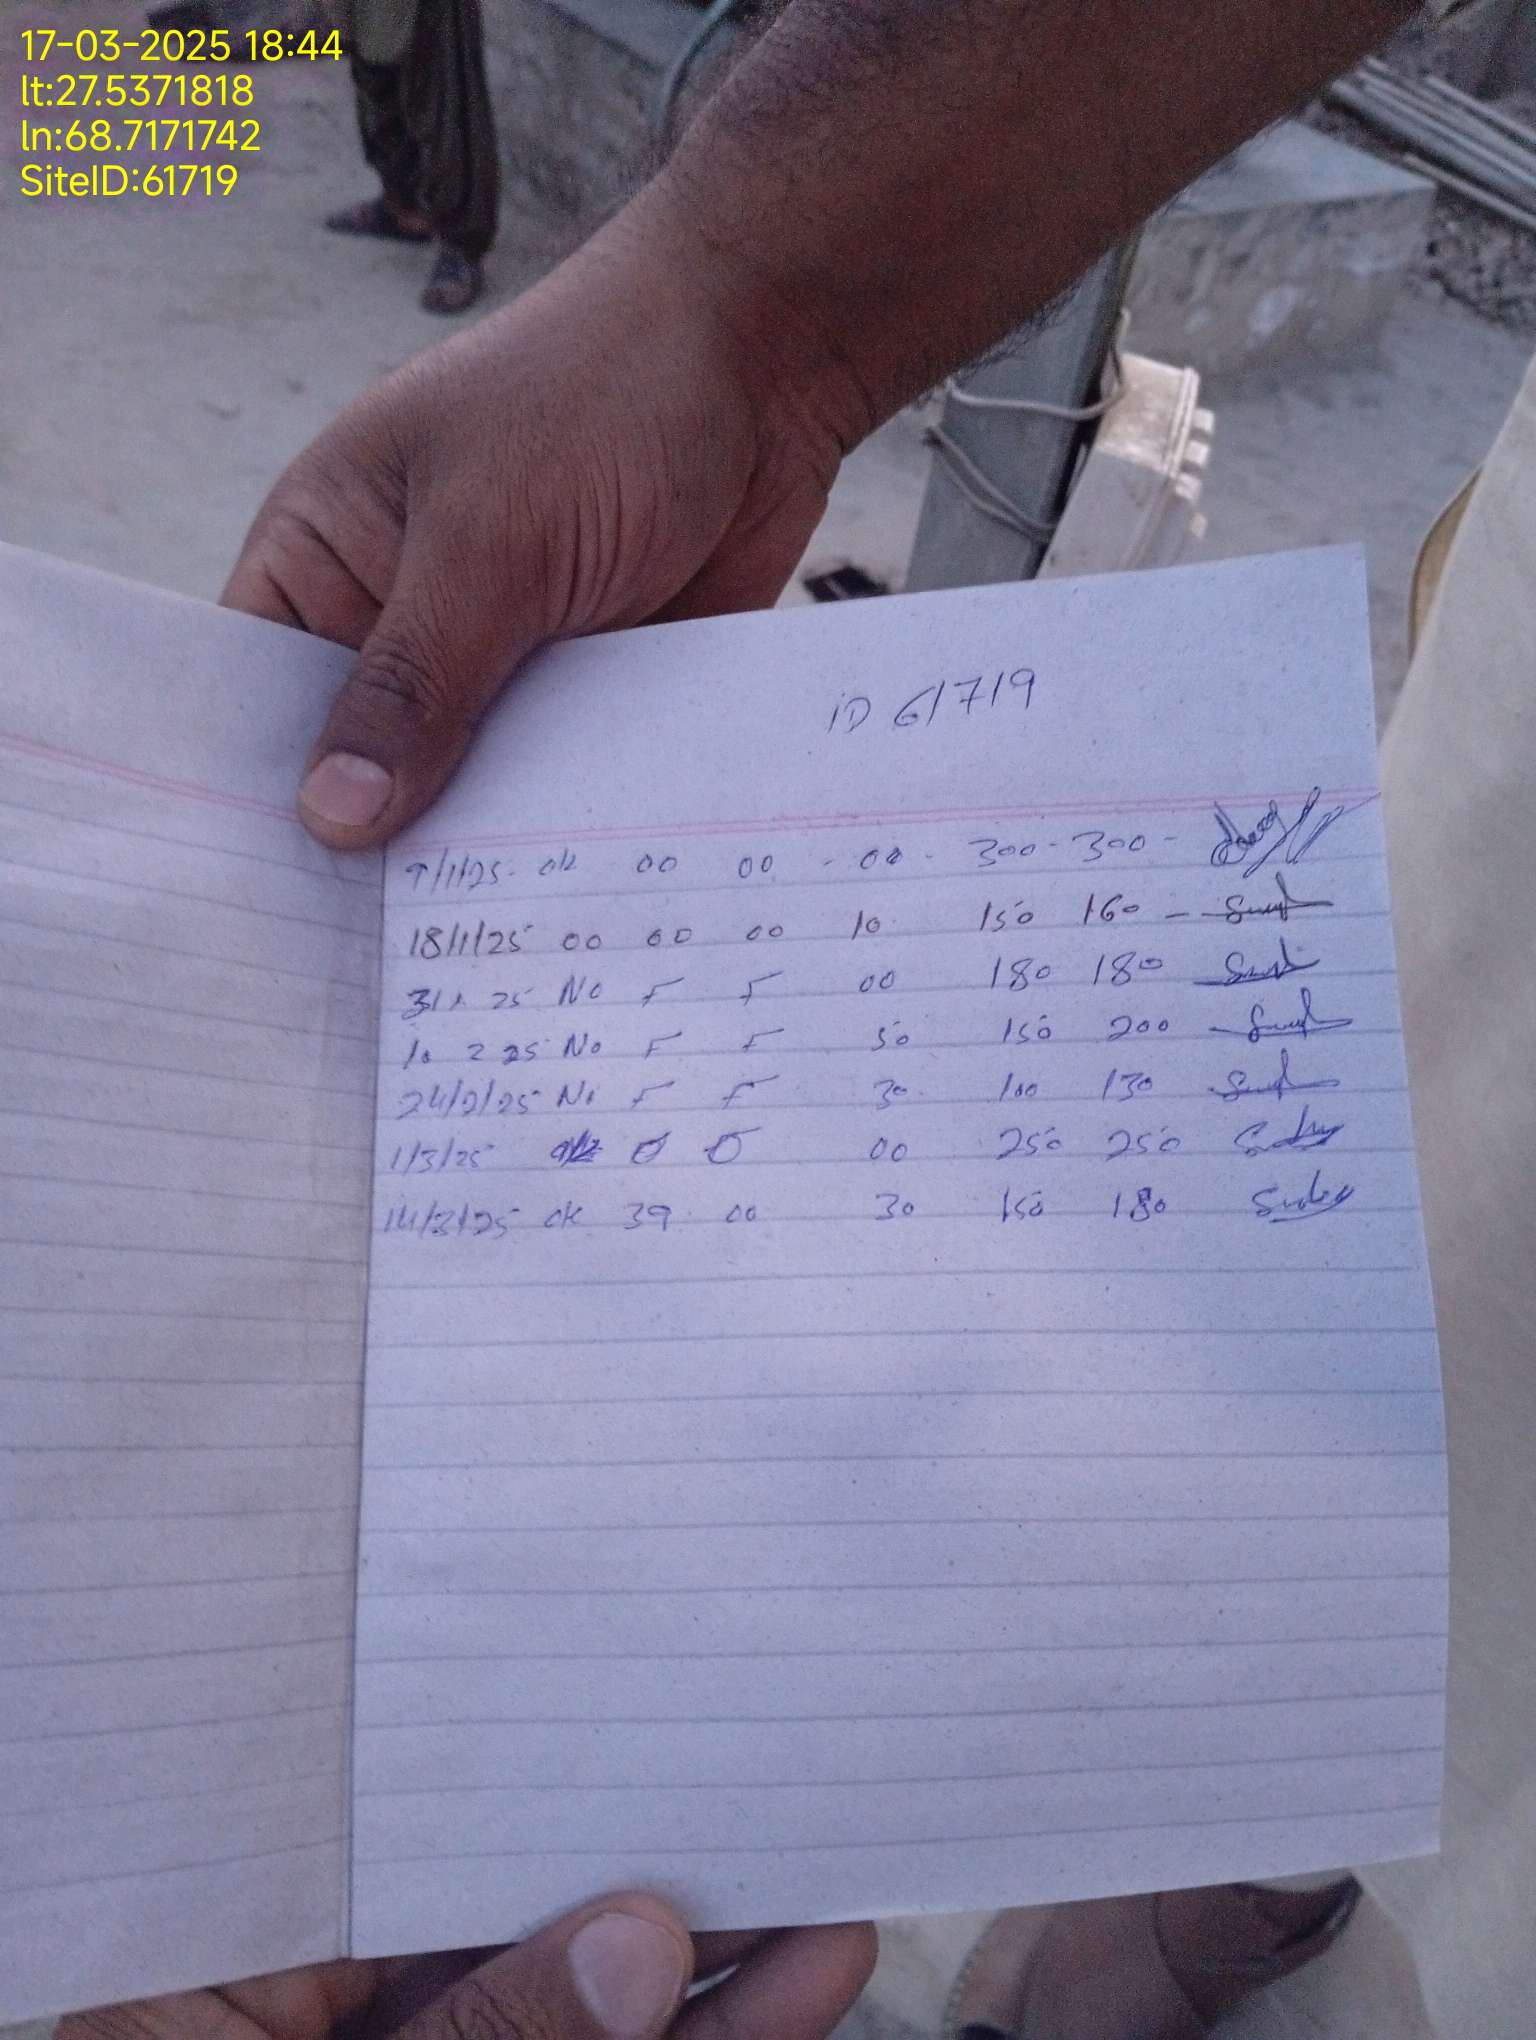 17-03-2025 18:44
lt:27.5371818
ln:68.7171742
SiteID:61719
iD 61719
9/1/25- ok 00 00 - 00 - 300 - 300 -
18/1/25 00 00 00 10 150 160 -
31 1 25 No F F 00 180 180
10 2 25 No F F 50 150 200
24/2/25 No F F 30 100 130
1/3/25 00 250 250
14/3/25 ok 39 00 30 150 180